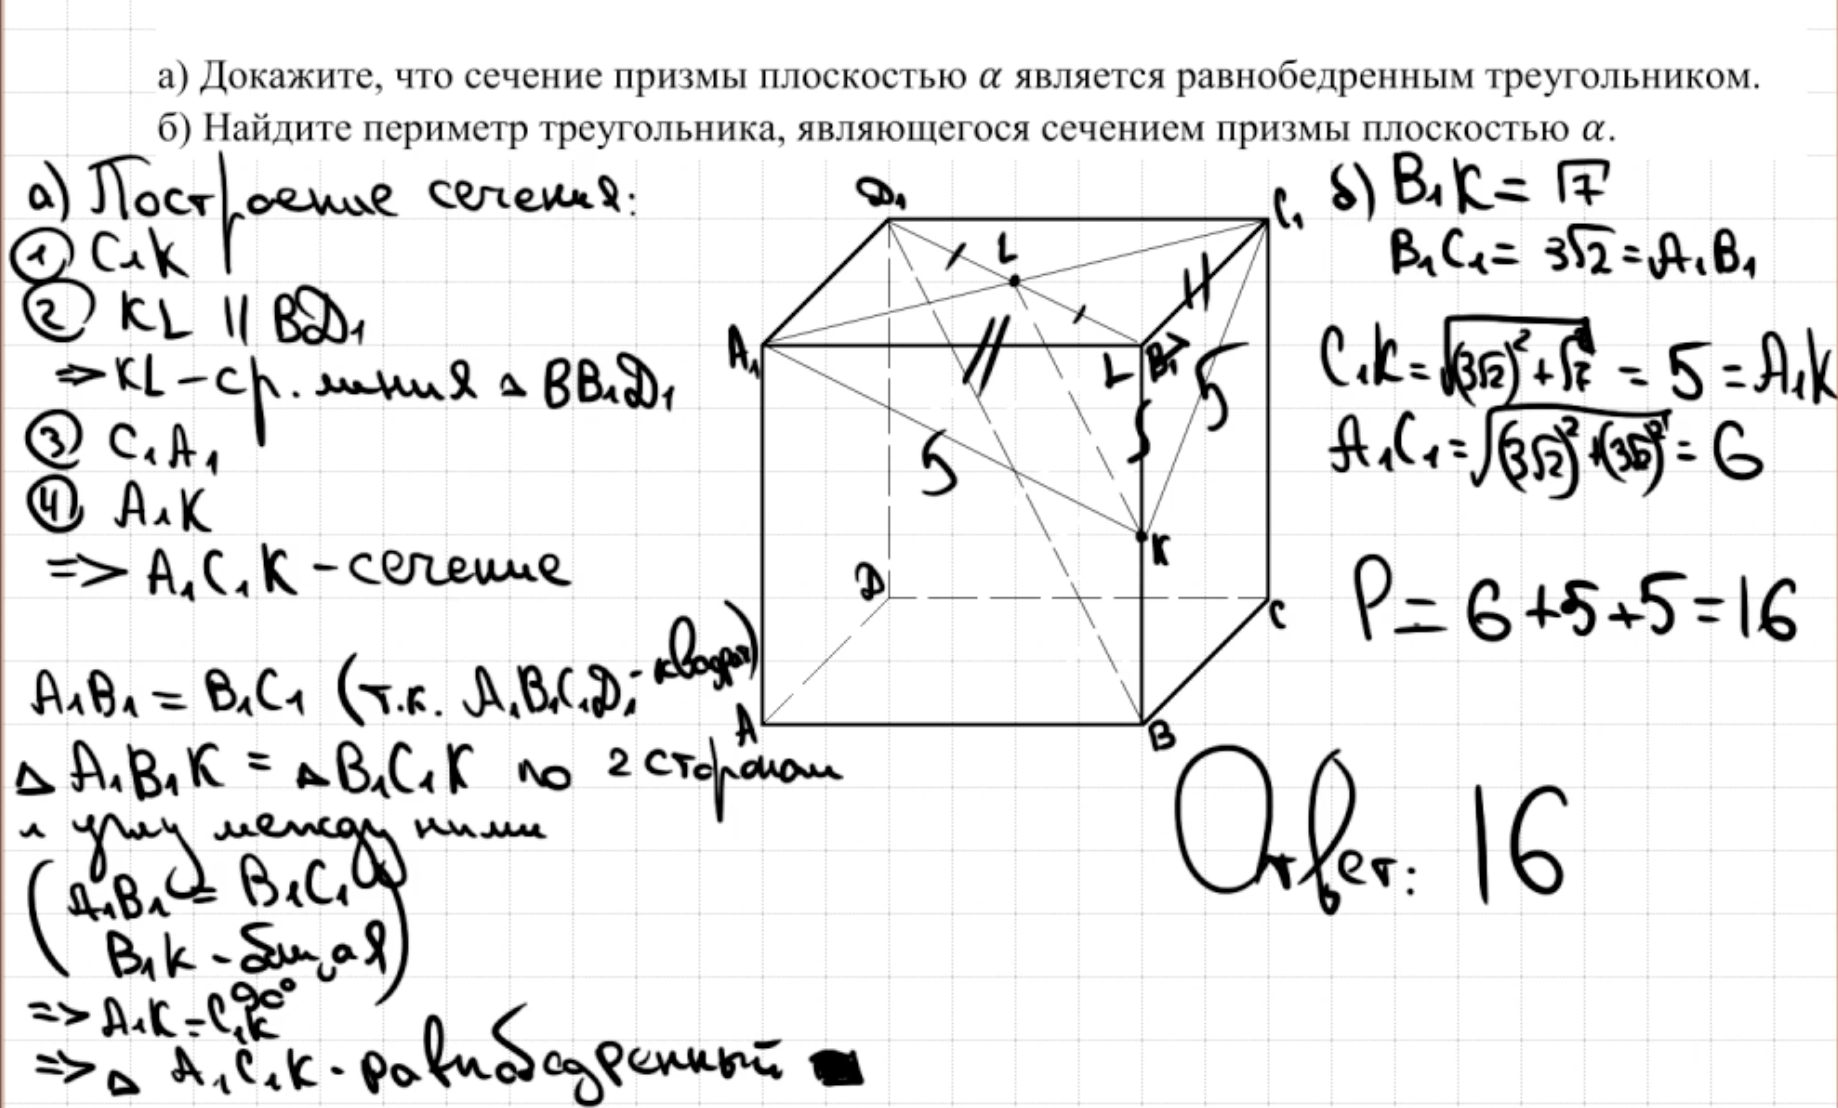 а) Докажите, что сечение призмы плоскостью α является равнобедренным треугольником.
б) Найдите периметр треугольника, являющегося сечением призмы плоскостью α.
а) Построение сечения:
① C₁K
② KL || BD₁
=> KL – ср. линия △ BB₁D₁
③ C₁A₁
④ A₁K
=> A₁C₁K – сечение
A₁B₁ = B₁C₁ (т.к. A₁B₁C₁D₁ - квадрат)
△ A₁B₁K = △ B₁C₁K по 2 сторонам
и углу между ними
(A₁B₁ = B₁C₁
B₁K - общая)
90°
=> A₁K = C₁K
=> △ A₁C₁K - равнобедренный
D₁
L
C₁
A₁
L B₁
5
5
K
D
C
A
B
б) B₁K = √7
B₁C₁ = 3√2 = A₁B₁
C₁K = √((3√2)² + √7²) = 5 = A₁K
A₁C₁ = √((3√2)² + (3√2)²) = 6
P = 6 + 5 + 5 = 16
Ответ: 16